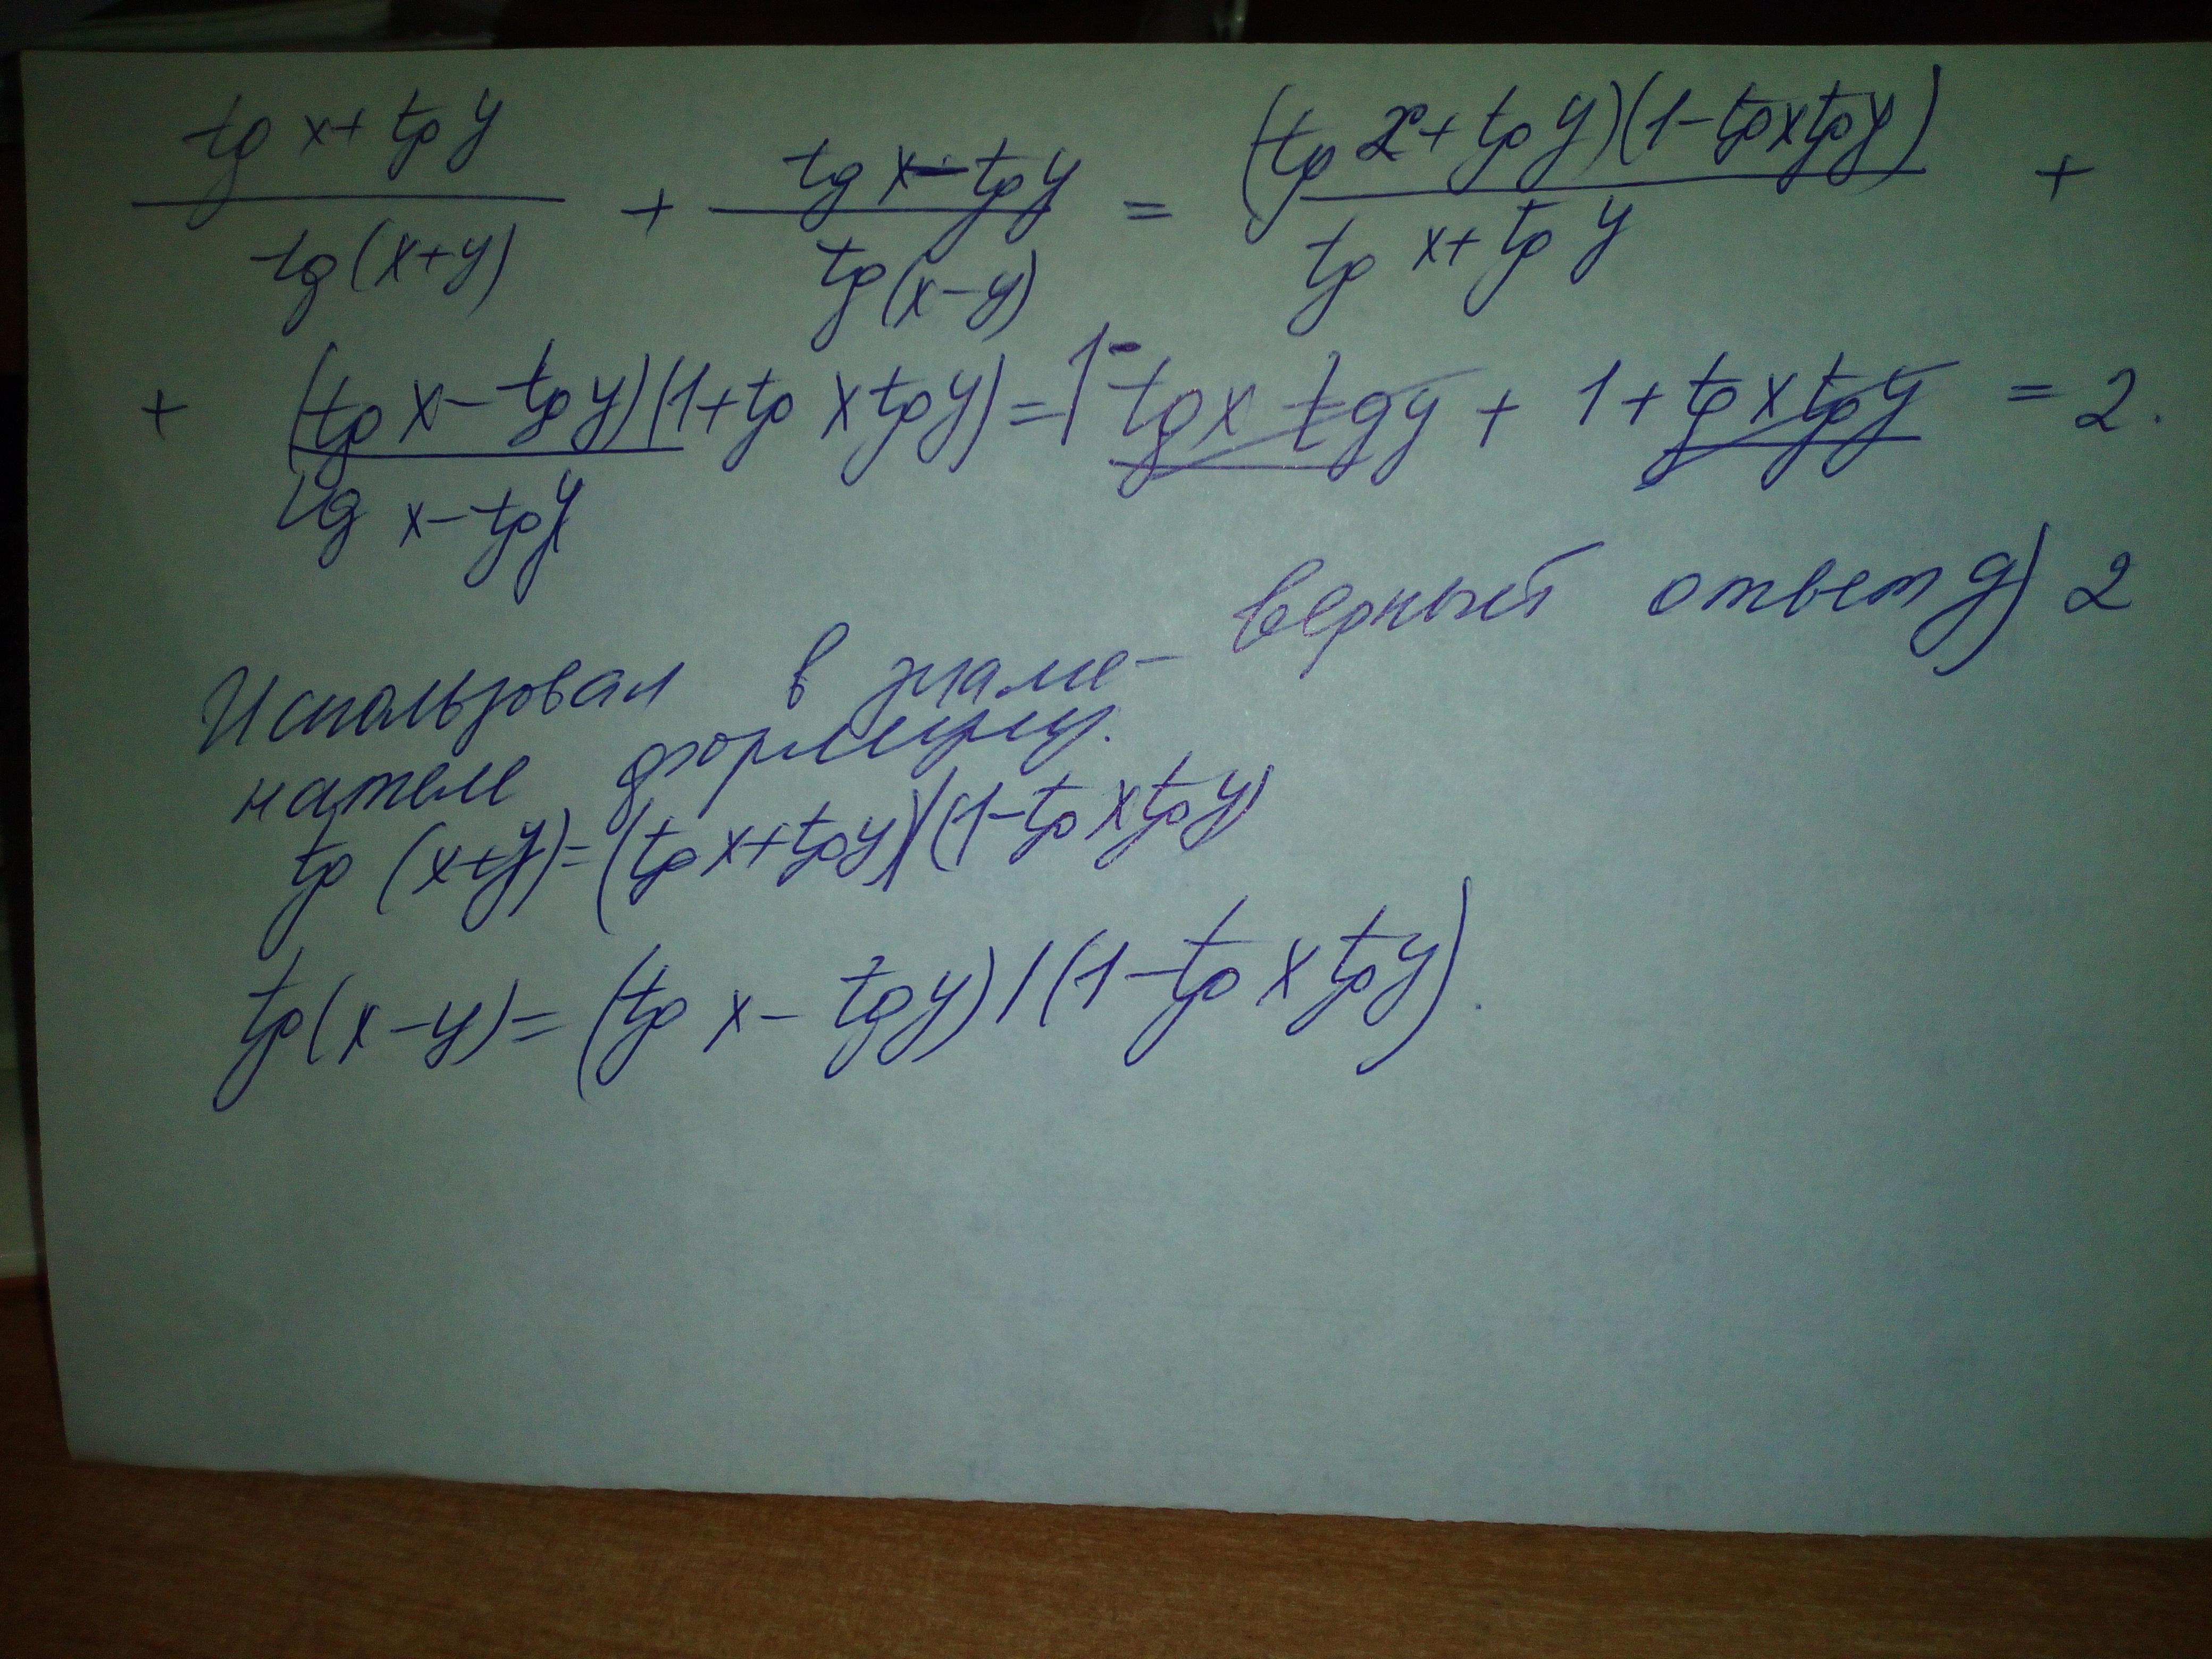 tg x + tg y / tg(x+y) + tg x - tg y / tg(x-y) = (tg x + tg y)(1 - tg x tg y) / tg x + tg y +
+ (tg x - tg y)(1 + tg x tg y) / tg x - tg y = 1 - tg x tg y + 1 + tg x tg y = 2.
верный ответ д) 2
Использовал в знаме-
нателе формулу.
tg (x+y) = (tg x + tg y)/(1 - tg x tg y)
tg(x-y) = (tg x - tg y)/(1 - tg x tg y).